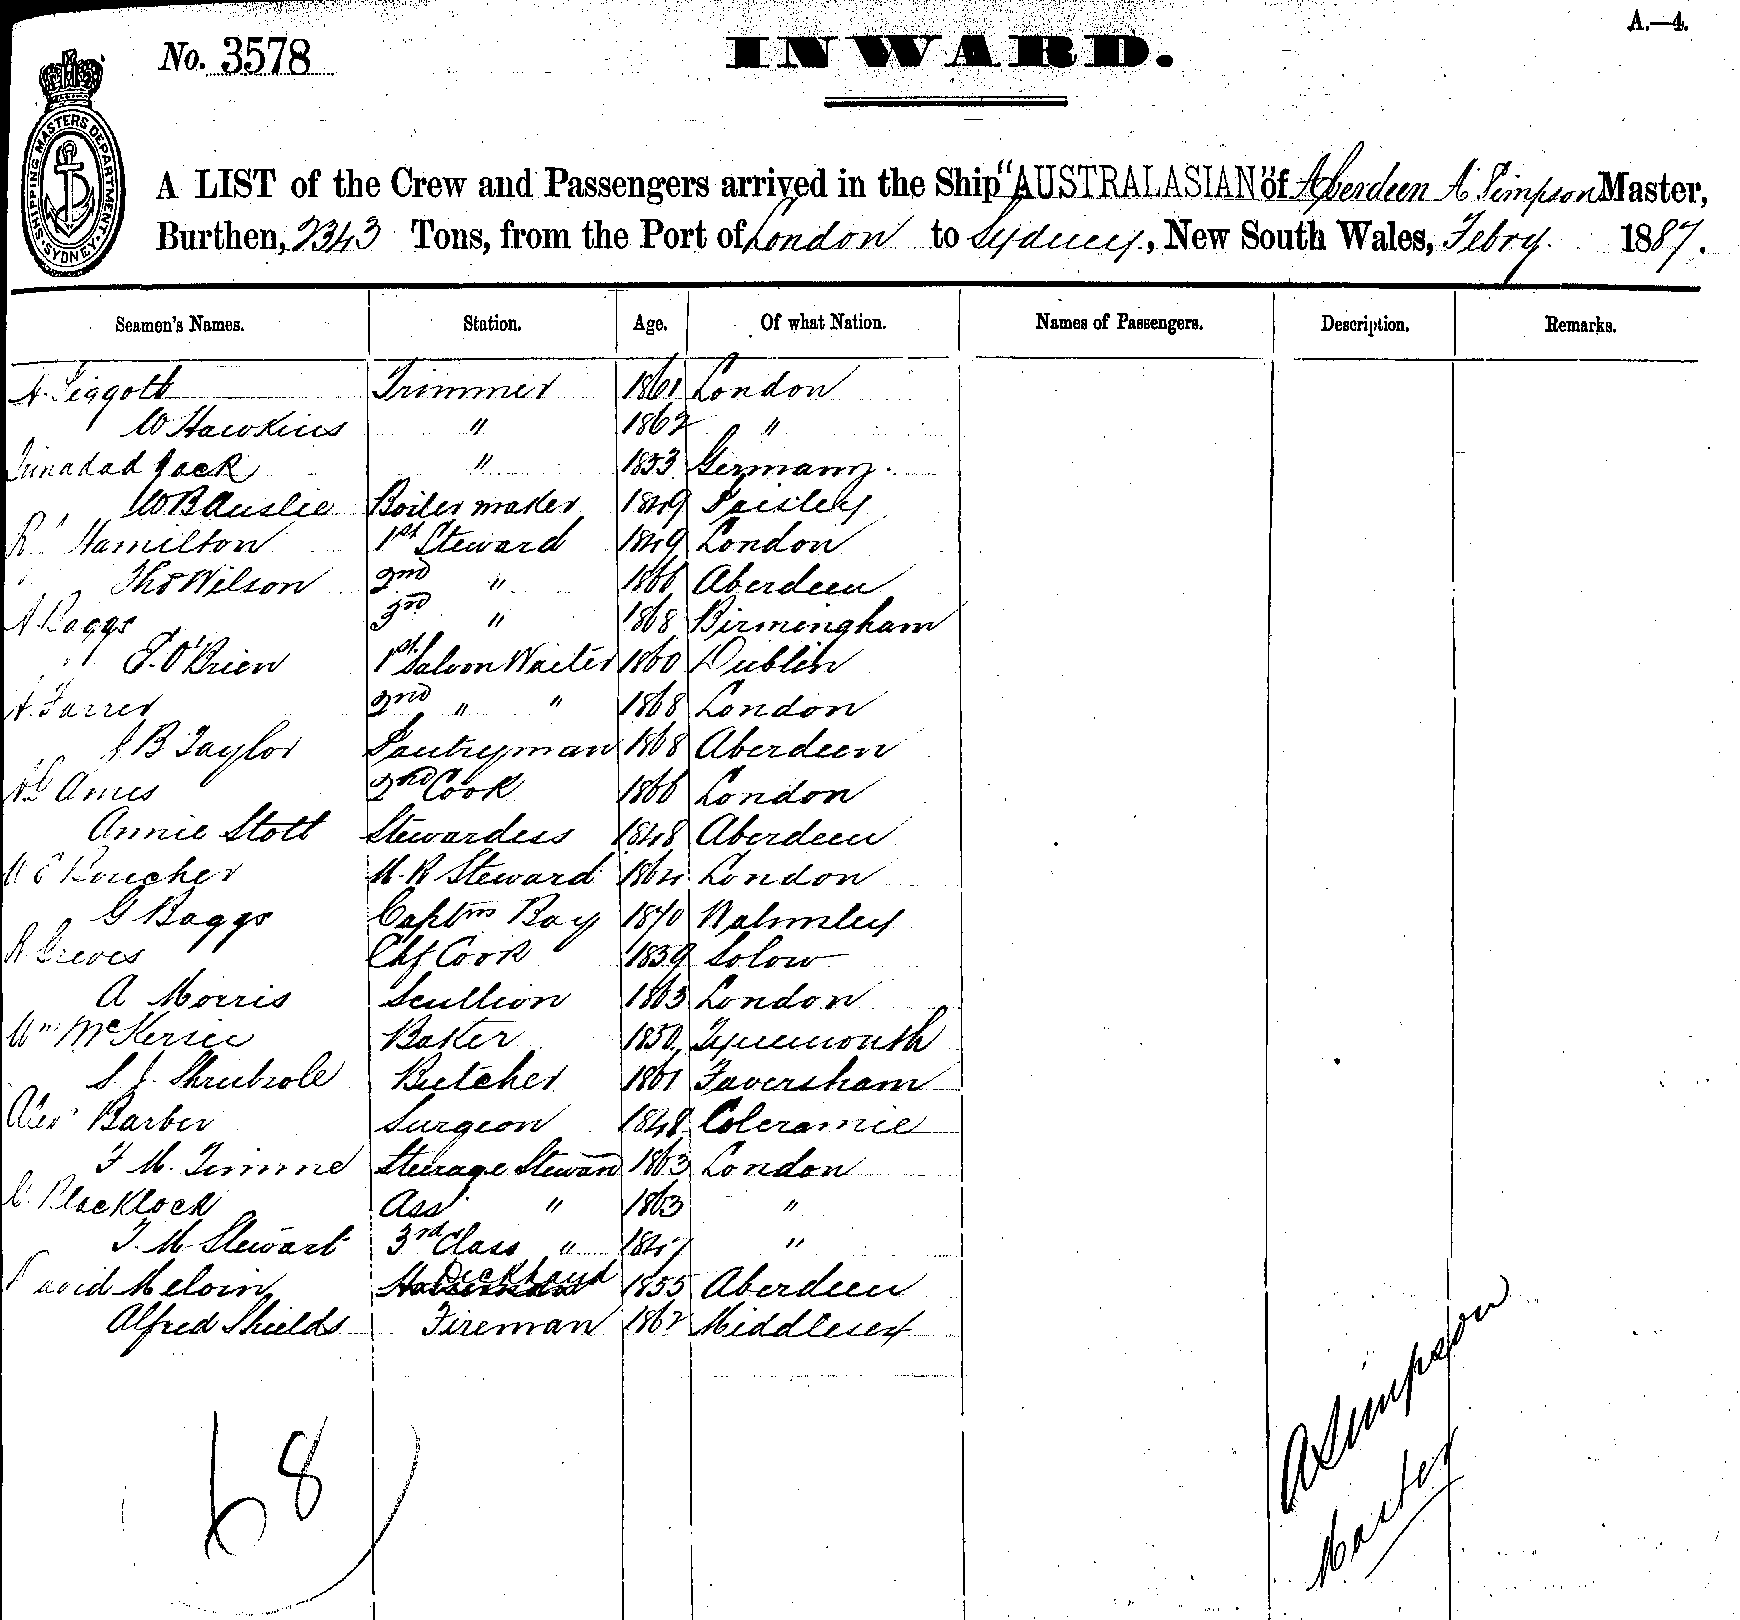 A.—4.
No. 3578
INWARD.
SHIPPING MASTERS DEPARTMENT. SYDNEY.
A LIST of the Crew and Passengers arrived in the Ship "AUSTRALASIAN" of Aberdeen A Simpson Master,
Burthen, 2343 Tons, from the Port of London to Sydney, New South Wales, Febry. 1887.
Seamen's Names. Station. Age. Of what Nation. Names of Passengers. Description. Remarks.
A. Piggott Trimmer 1861 London
W Hawkins " 1862 "
Trinadad Jack " 1853 Germany.
W B Auslie Boiler maker 1849 Paisley
Rt Hamilton 1st Steward 1849 London
Thos Wilson 2nd " 1866 Aberdeen
A Baggs 3rd " 1868 Birmingham
T. O'Brien 1st Saloon Waiter 1860 Dublin
A. Farrer 2nd " " 1868 London
J B Taylor Pantryman 1868 Aberdeen
Ames 2nd Cook 1866 London
Annie Stott Stewardess 1848 Aberdeen
Boucher M. R Steward 1864 London
G Baggs Captns Boy 1870 Walmley
R Greves Chf Cook 1859 Solow
A Morris Scullion 1863 London
Wm McKersie Baker 1850 Tynemouth
S J. Shrubsole Butcher 1861 Faversham
Alexr Barber Surgeon 1848 Coleramie
F M. Timme Steerage Steward 1863 London
C. Blacklock Asst " 1863 "
T. M Stewart 3rd Class " 1847 "
David Melvin Deckhand 1855 Aberdeen
Alfred Shields Fireman 1862 Middlesex
68
A Simpson
Master